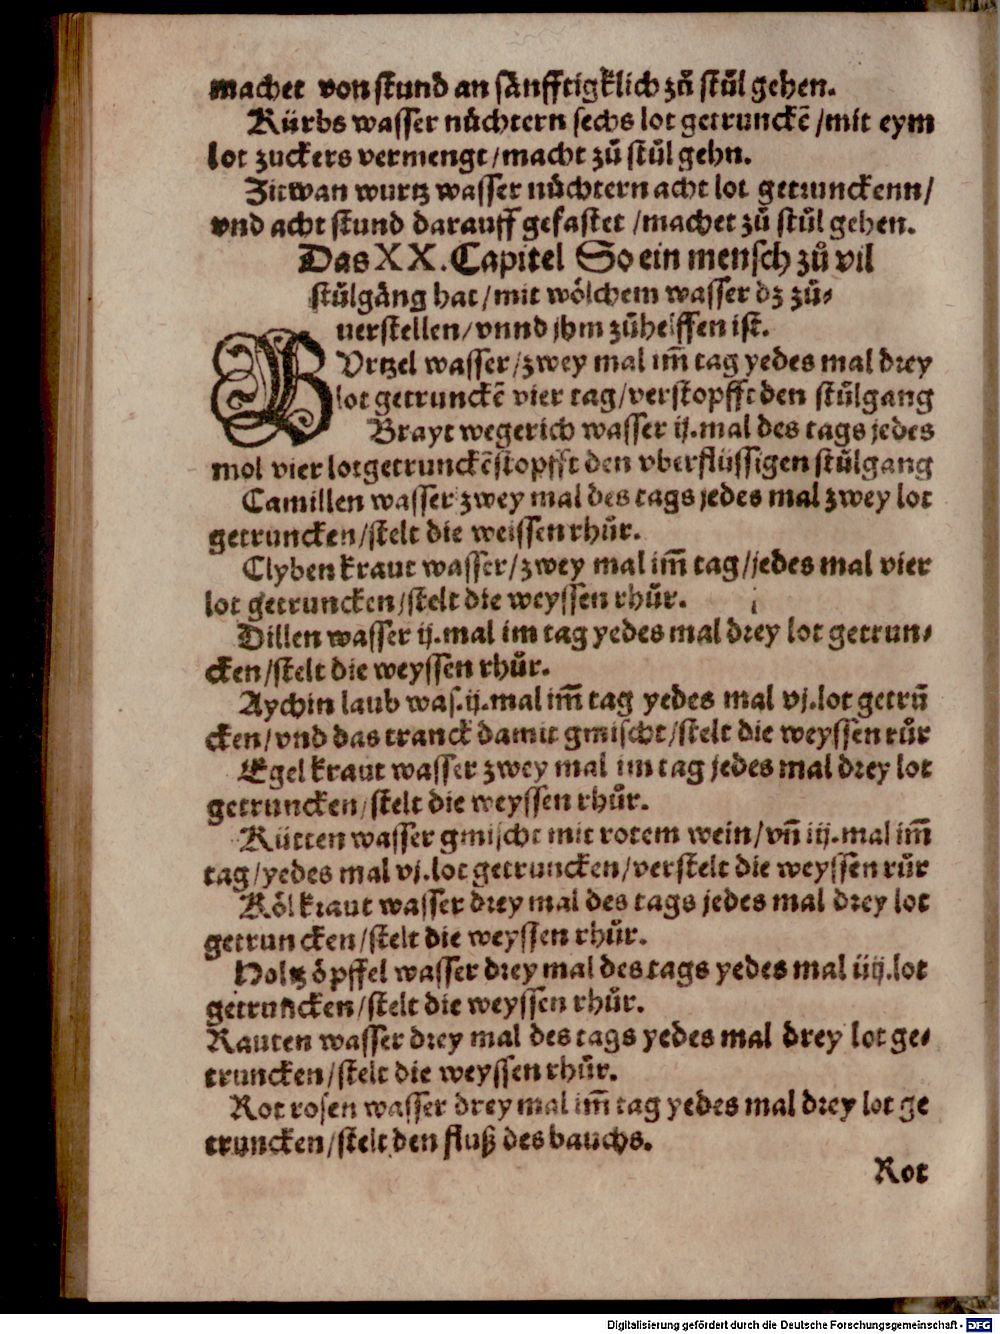 machet von stund an sånfftigklich zů stůl gehen.
Kürbs wasser nůchtern sechs lot getrunckē /mit eym
lot zuckers vermengt/macht zů stůl gehn.
Zitwan wurtz wasser nůchtern acht lot getrunckenn/
vnd acht stund darauff gefastet /machet zů stůl gehen.
Das XX. Capitel So ein mensch zů vil
stůlgång hat/mit wölchem wasser dz zů⸗
uerstellen/vnnd jhm zůhelffen ist.
BVrtzel wasser/zwey mal im̄ tag yedes mal drey
lot getrunckē vier tag/verstopfft den stůlgang
Brayt wegerich wasser ij.mal des tags jedes
mol vier lotgetrunckēstopfft den vberflüssigen stůlgang
Camillen wasser zwey mal des tags jedes mal zwey lot
getruncken/stelt die weissen rhůr.
Clyben kraut wasser/zwey mal im̄ tag/jedes mal vier
lot getruncken/stelt die weyssen rhůr.
Dillen wasser ij.mal im tag yedes mal drey lot getrun⸗
cken/stelt die weyssen rhůr.
Aychin laub was.ij.mal im̄ tag yedes mal vj.lot getrū
cken/vnd das tranck damit gmischt/stelt die weyssen růr
Egel kraut wasser zwey mal im tag jedes mal drey lot
getruncken/stelt die weyssen rhůr.
Kütten wasser gmischt mit rotem wein/vn̄ iij.mal im̄
tag/yedes mal vj.lot getruncken/verstelt die weyssen růr
Kölkraut wasser drey mal des tags jedes mal drey lot
getruncken/stelt die weyssen rhůr.
Holtz öpffel wasser drey mal des tags yedes mal iiij.lot
getruncken/stelt die weyssen rhůr.
Rauten wasser drey mal des tags yedes mal drey lot ge⸗
truncken/stelt die weyssen rhůr.
Rot rosen wasser drey mal im̄ tag yedes mal drey lot ge
truncken/stelt den fluß des bauchs.
Rot
Digitalisierung gefördert durch die Deutsche Forschungsgemeinschaft - DFG